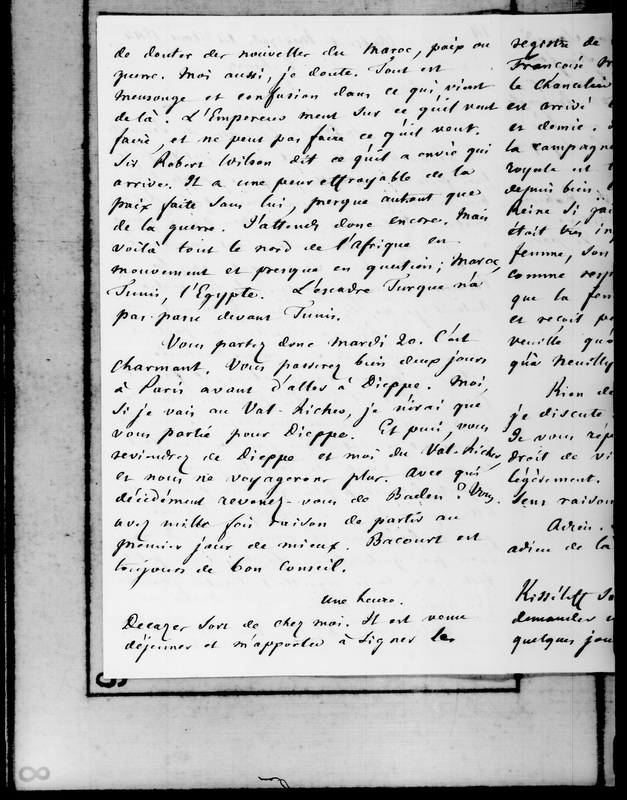 de douter des nouvelles du Maroc, paix ou
guerre. Moi aussi, je doute. Tout est
mensonge et confusion dans ce qui vient
de là. L'Empereur ment sur ce qu'il veut
faire, et ne peut pas faire ce qu'il veut.
Sir Robert Wilson dit ce qu'il a envie qui
arrive. Il a une peur effroyable de la
paix faite sans lui, presque autant que
de la guerre. J'attends donc encore. Mais
voilà tout le nord de l'Afrique en
mouvement et presque en question; Maroc,
Tunis, l'Egypte. L'escadre Turque n'a
pas passé devant Tunis.
Vous partez donc mardi 20. C'est
charmant. Vous passerez bien deux jours
à Paris avant d'aller à Dieppe. Moi,
si je vais au Val-Richer, je n'irai que
vous partie pour Dieppe. Et puis, vous
reviendrez de Dieppe et moi du Val-Richer,
et nous ne voyagerons plus. Avec qui
décidément revenez-vous de Baden? Vous
avez mille fois raison de partir au
premier jour de mieux. Bacourt est
toujours de bon conseil.
Une heure.
Decazes sort de chez moi. Il est venu
déjeuner et m'apporter à signer les
registre de
François
le Chancelier
est arrivé
et demie.
la campagne
royale est
depuis bien
Reine si j'ai
était bien
femme, son
comme resp
que la fem
et reçoit
veuille qu'
qu'à Neuilly
Rien de
je discute
Je vous rép
droit de vi
légèrement.
sens raison
Adieu.
adieu de la
Kisséleff
demander
quelques jou
8